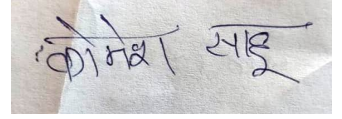 कोमेश साहू